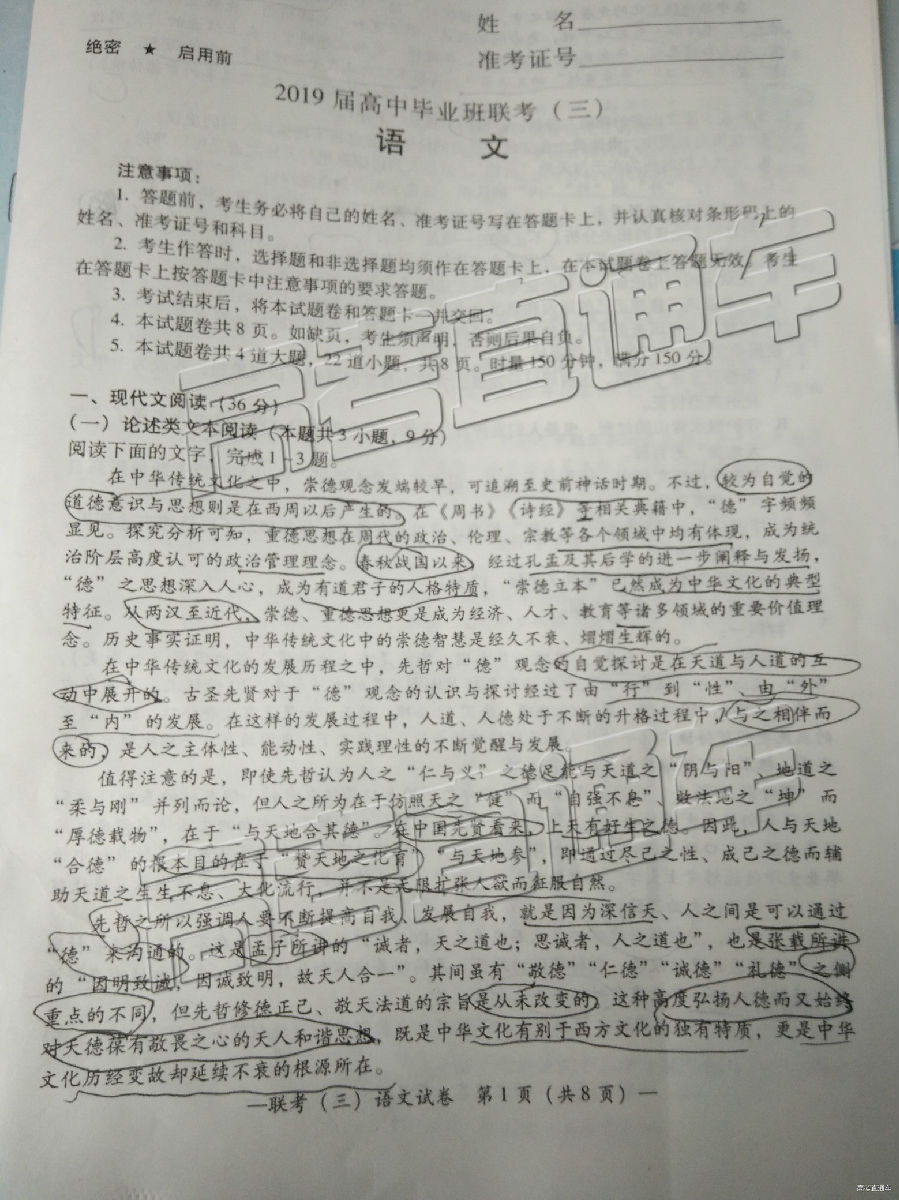 姓　　名
绝密　★　启用前
准考证号
2019届高中毕业班联考（三）
语　　文
注意事项：
1. 答题前，考生务必将自己的姓名、准考证号写在答题卡上，并认真核对条形码上的
姓名、准考证号和科目。
2. 考生作答时，选择题和非选择题均须作在答题卡上，在本试题卷上答题无效。考生
在答题卡上按答题卡中注意事项的要求答题。
3. 考试结束后，将本试题卷和答题卡一并交回。
4. 本试题卷共8页。如缺页，考生须声明，否则后果自负。
5. 本试题卷共4道大题，22道小题，共8页。时量150分钟，满分150分。
一、现代文阅读（36分）
（一）论述类文本阅读（本题共3小题，9分）
阅读下面的文字，完成1～3题。
在中华传统文化之中，崇德观念发端较早，可追溯至史前神话时期。不过，较为自觉的
道德意识与思想则是在西周以后产生的。在《周书》《诗经》等相关典籍中，“德”字频频
显见。探究分析可知，重德思想在周代的政治、伦理、宗教等各个领域中均有体现，成为统
治阶层高度认可的政治管理理念。春秋战国以来，经过孔孟及其后学的进一步阐释与发扬，
“德”之思想深入人心，成为有道君子的人格特质，“崇德立本”已然成为中华文化的典型
特征。从两汉至近代，崇德、重德思想更是成为经济、人才、教育等诸多领域的重要价值理
念。历史事实证明，中华传统文化中的崇德智慧是经久不衰、熠熠生辉的。
在中华传统文化的发展历程之中，先哲对“德”观念的自觉探讨是在天道与人道的互
动中展开的。古圣先贤对于“德”观念的认识与探讨经过了由“行”到“性”、由“外”
至“内”的发展。在这样的发展过程中，人道、人德处于不断的升格过程中，与之相伴而
来的，是人之主体性、能动性、实践理性的不断觉醒与发展。
值得注意的是，即使先哲认为人之“仁与义”之德足能与天道之“阴与阳”、地道之
“柔与刚”并列而论，但人之所为在于仿照天之“健”而“自强不息”、效法地之“坤”而
“厚德载物”，在于“与天地合其德”。在中国先贤看来，上天有好生之德。因此，人与天地
“合德”的根本目的在于“赞天地之化育”“与天地参”，即通过尽己之性、成己之德而辅
助天道之生生不息、大化流行，并不是无限扩张人欲而征服自然。
先哲之所以强调人要不断提高自我、发展自我，就是因为深信天、人之间是可以通过
“德”来沟通的。这是孟子所讲的“诚者，天之道也；思诚者，人之道也”，也是张载所讲
的“因明致诚，因诚致明，故天人合一”。其间虽有“敬德”“仁德”“诚德”“礼德”之侧
重点的不同，但先哲修德正己、敬天法道的宗旨是从未改变的。这种高度弘扬人德而又始终
对天德葆有敬畏之心的天人和谐思想，既是中华文化有别于西方文化的独有特质，更是中华
文化历经变故却延续不衰的根源所在。
—联考（三）语文试卷　第1页（共8页）—
高考直通车
高考直通车
高考直通车